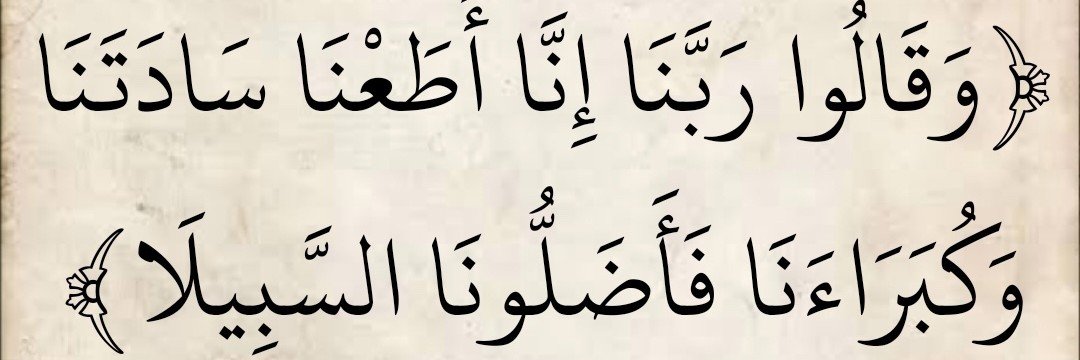 ﴿وَقَالُوا رَبَّنَا إِنَّا أَطَعْنَا سَادَتَنَا
وَكُبَرَاءَنَا فَأَضَلُّونَا السَّبِيلَا﴾